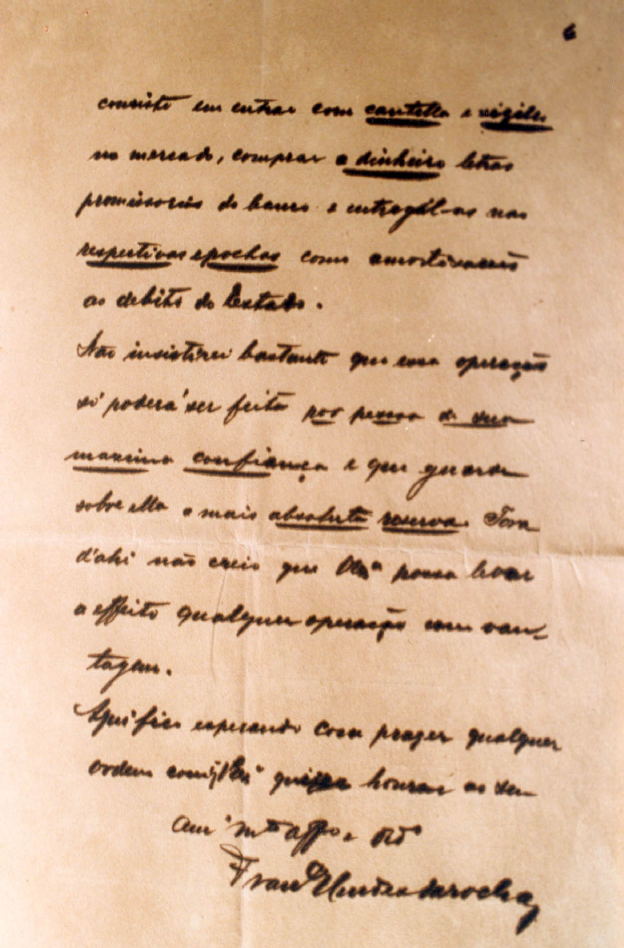 6
consiste em entrar com cautella e vigilcia
no mercado, comprar a dinheiro letras
promissorias do banco e entregal-as nas
respectivas epochas como amortisações
ao debito do Estado.
Não insistirei bastante que essa operação
só poderá ser feita por pessoa de sua
maxima confiança e que guarde
sobre ella a mais absoluta reserva. Fora
d'ahi não creio que possa levar
a effeito qualquer operação com van-
tagem.
Aqui fico esperando com prazer qualquer
ordem com q' honrar ao seu
Am.º m.to aff.o e